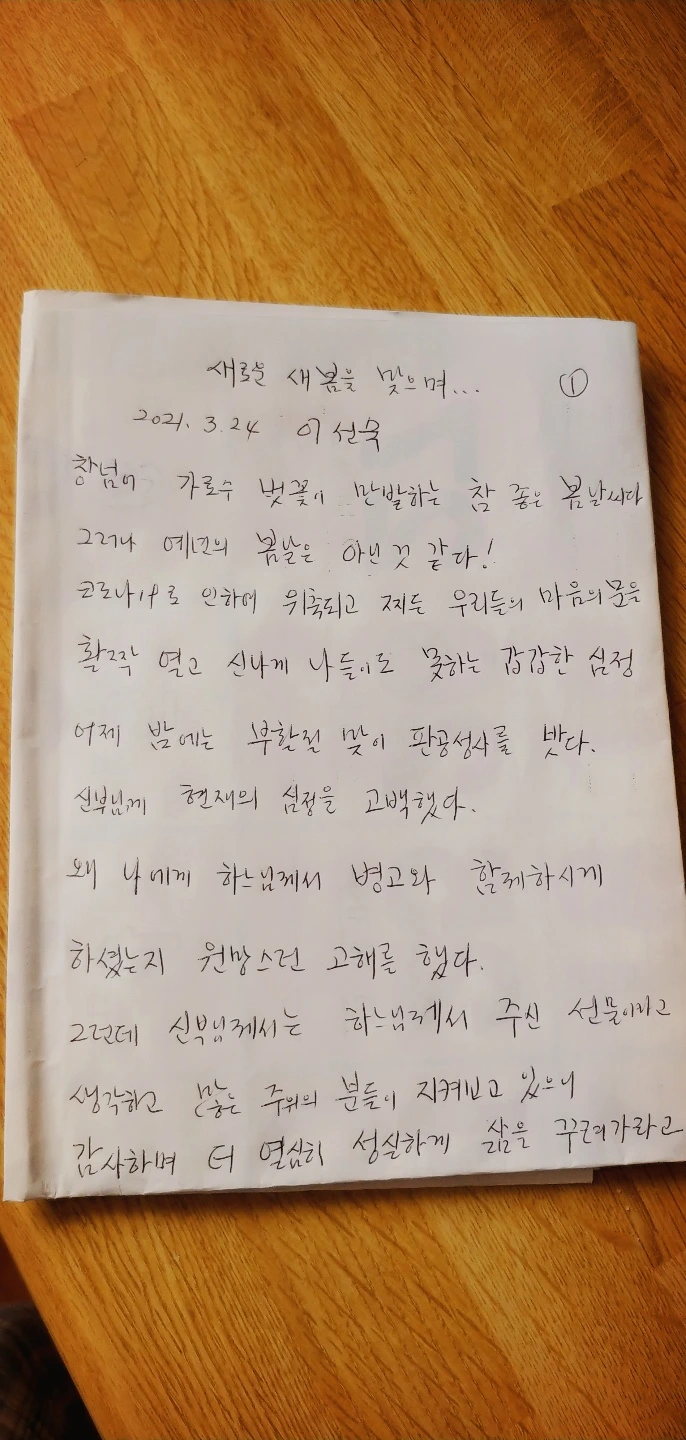 새로운 새봄을 맞으며... ①
2021. 3.24 이선숙
창넘어 가로수 벚꽃이 만발하는 참 좋은 봄날씨다
그러나 예년의 봄날은 아닌 것 같다!
코로나19로 인하여 위축되고 찌든 우리들의 마음의 문을
활짝 열고 신나게 나들이도 못하는 갑갑한 심정
어제 밤에는 부활절 맞이 판공성사를 밧다.
신부님께 현재의 심정을 고백했다.
왜 나에게 하느님께서 병고와 함께하시게
하셨는지 원망스런 고해를 했다.
그런데 신부님께서는 하느님께서 주신 선물이라고
생각하고 많은 주위의 분들이 지켜보고 있으니
감사하며 더 열심히 성실하게 삶을 꾸려가라고